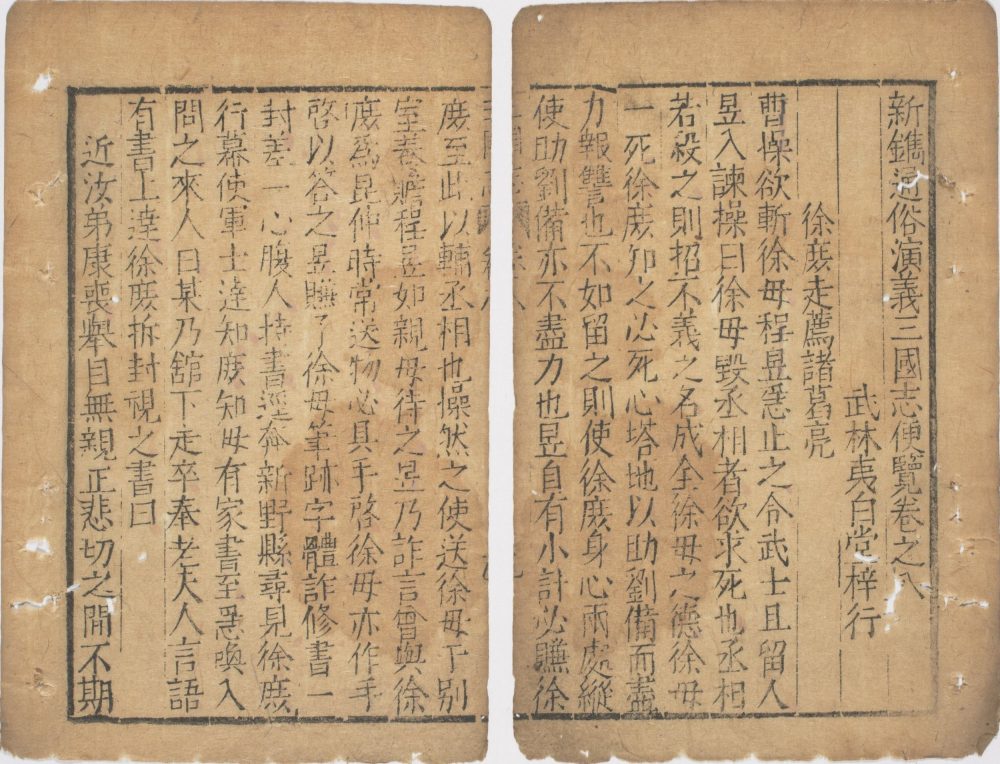 新鐫通俗演義三國志便覽卷之八
武林夷白堂梓行
徐庶走薦諸葛亮
曹操欲斬徐母程昱急止之令武士且留人
昱入諫操曰徐母毀丞相者欲求死也丞相
若殺之則招不義之名成全徐母之德徐母
一死徐庶知之必死心塔地以助劉備而盡
力報讐也不如留之則使徐庶身心兩處縱
使助劉備亦不盡力也昱自有小計必賺徐
庶至此以輔丞相也操然之使送徐母于別
室養贍程昱如親母待之昱乃詐言曾與徐
庶為昆仲時常送物必具手啓徐母亦作手
啓以答之昱賺了徐母筆跡字體詐修書一
封差一心腹人持書逕奔新野縣尋見徐庶
行幕使軍士達知庶知母有家書至急喚入
問之來人曰某乃舘下走卒奉老夫人言語
有書上達徐庶拆封視之書曰
近汝弟康喪舉目無親正悲切之間不期